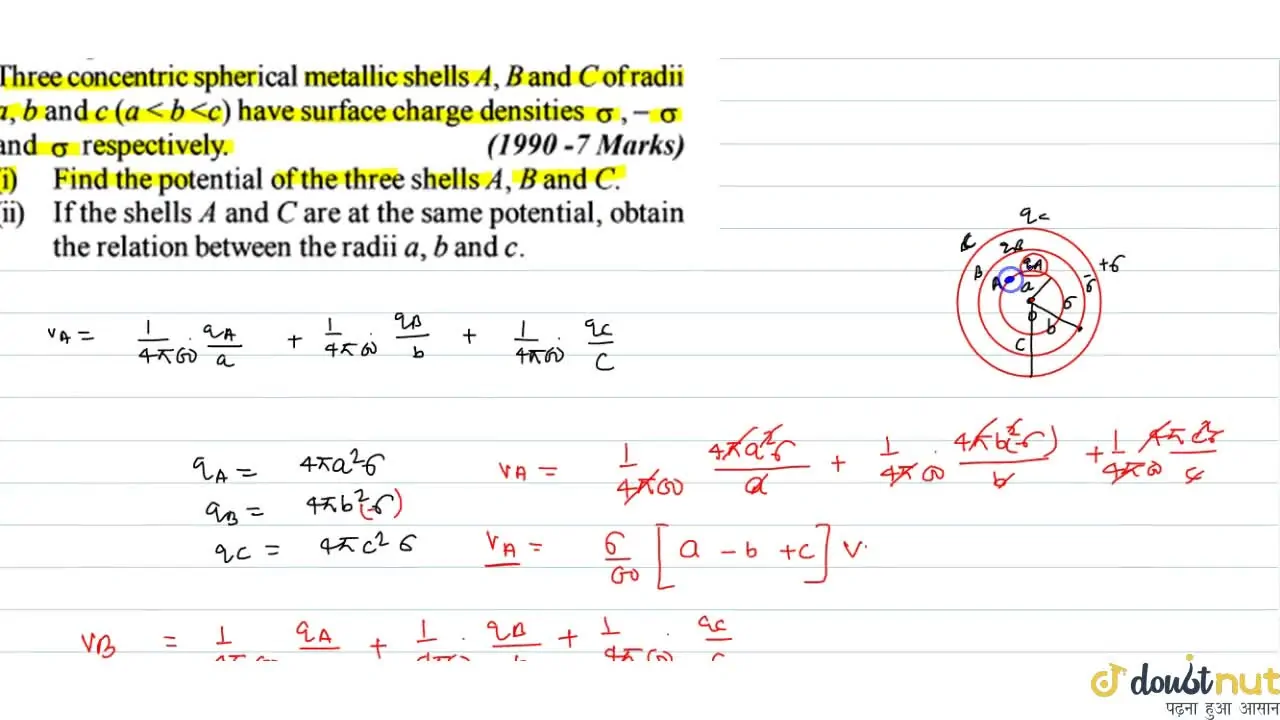 Three concentric spherical metallic shells A, B and C of radii
a, b and c (a < b < c) have surface charge densities σ, – σ
and σ respectively. (1990 -7 Marks)
(i) Find the potential of the three shells A, B and C.
(ii) If the shells A and C are at the same potential, obtain
the relation between the radii a, b and c.
qc
C qB qA +σ
B A a -σ
σ
O b
C
VA = 1/4πε0 · qA/a + 1/4πε0 · qB/b + 1/4πε0 · qC/C
qA = 4πa²σ
qB = 4πb²(-σ)
qC = 4πC²σ
VA = 1/4πε0 4πa²σ/a + 1/4πε0 · 4πb²(-σ)/b + 1/4πε0 4πc²σ/c
VA = σ/ε0 [a - b + c] V.
VB = 1/4πε0 qA + 1/4πε0 · qB/b + 1/4πε0 · qC/c
doubtnut
पढ़ना हुआ आसान